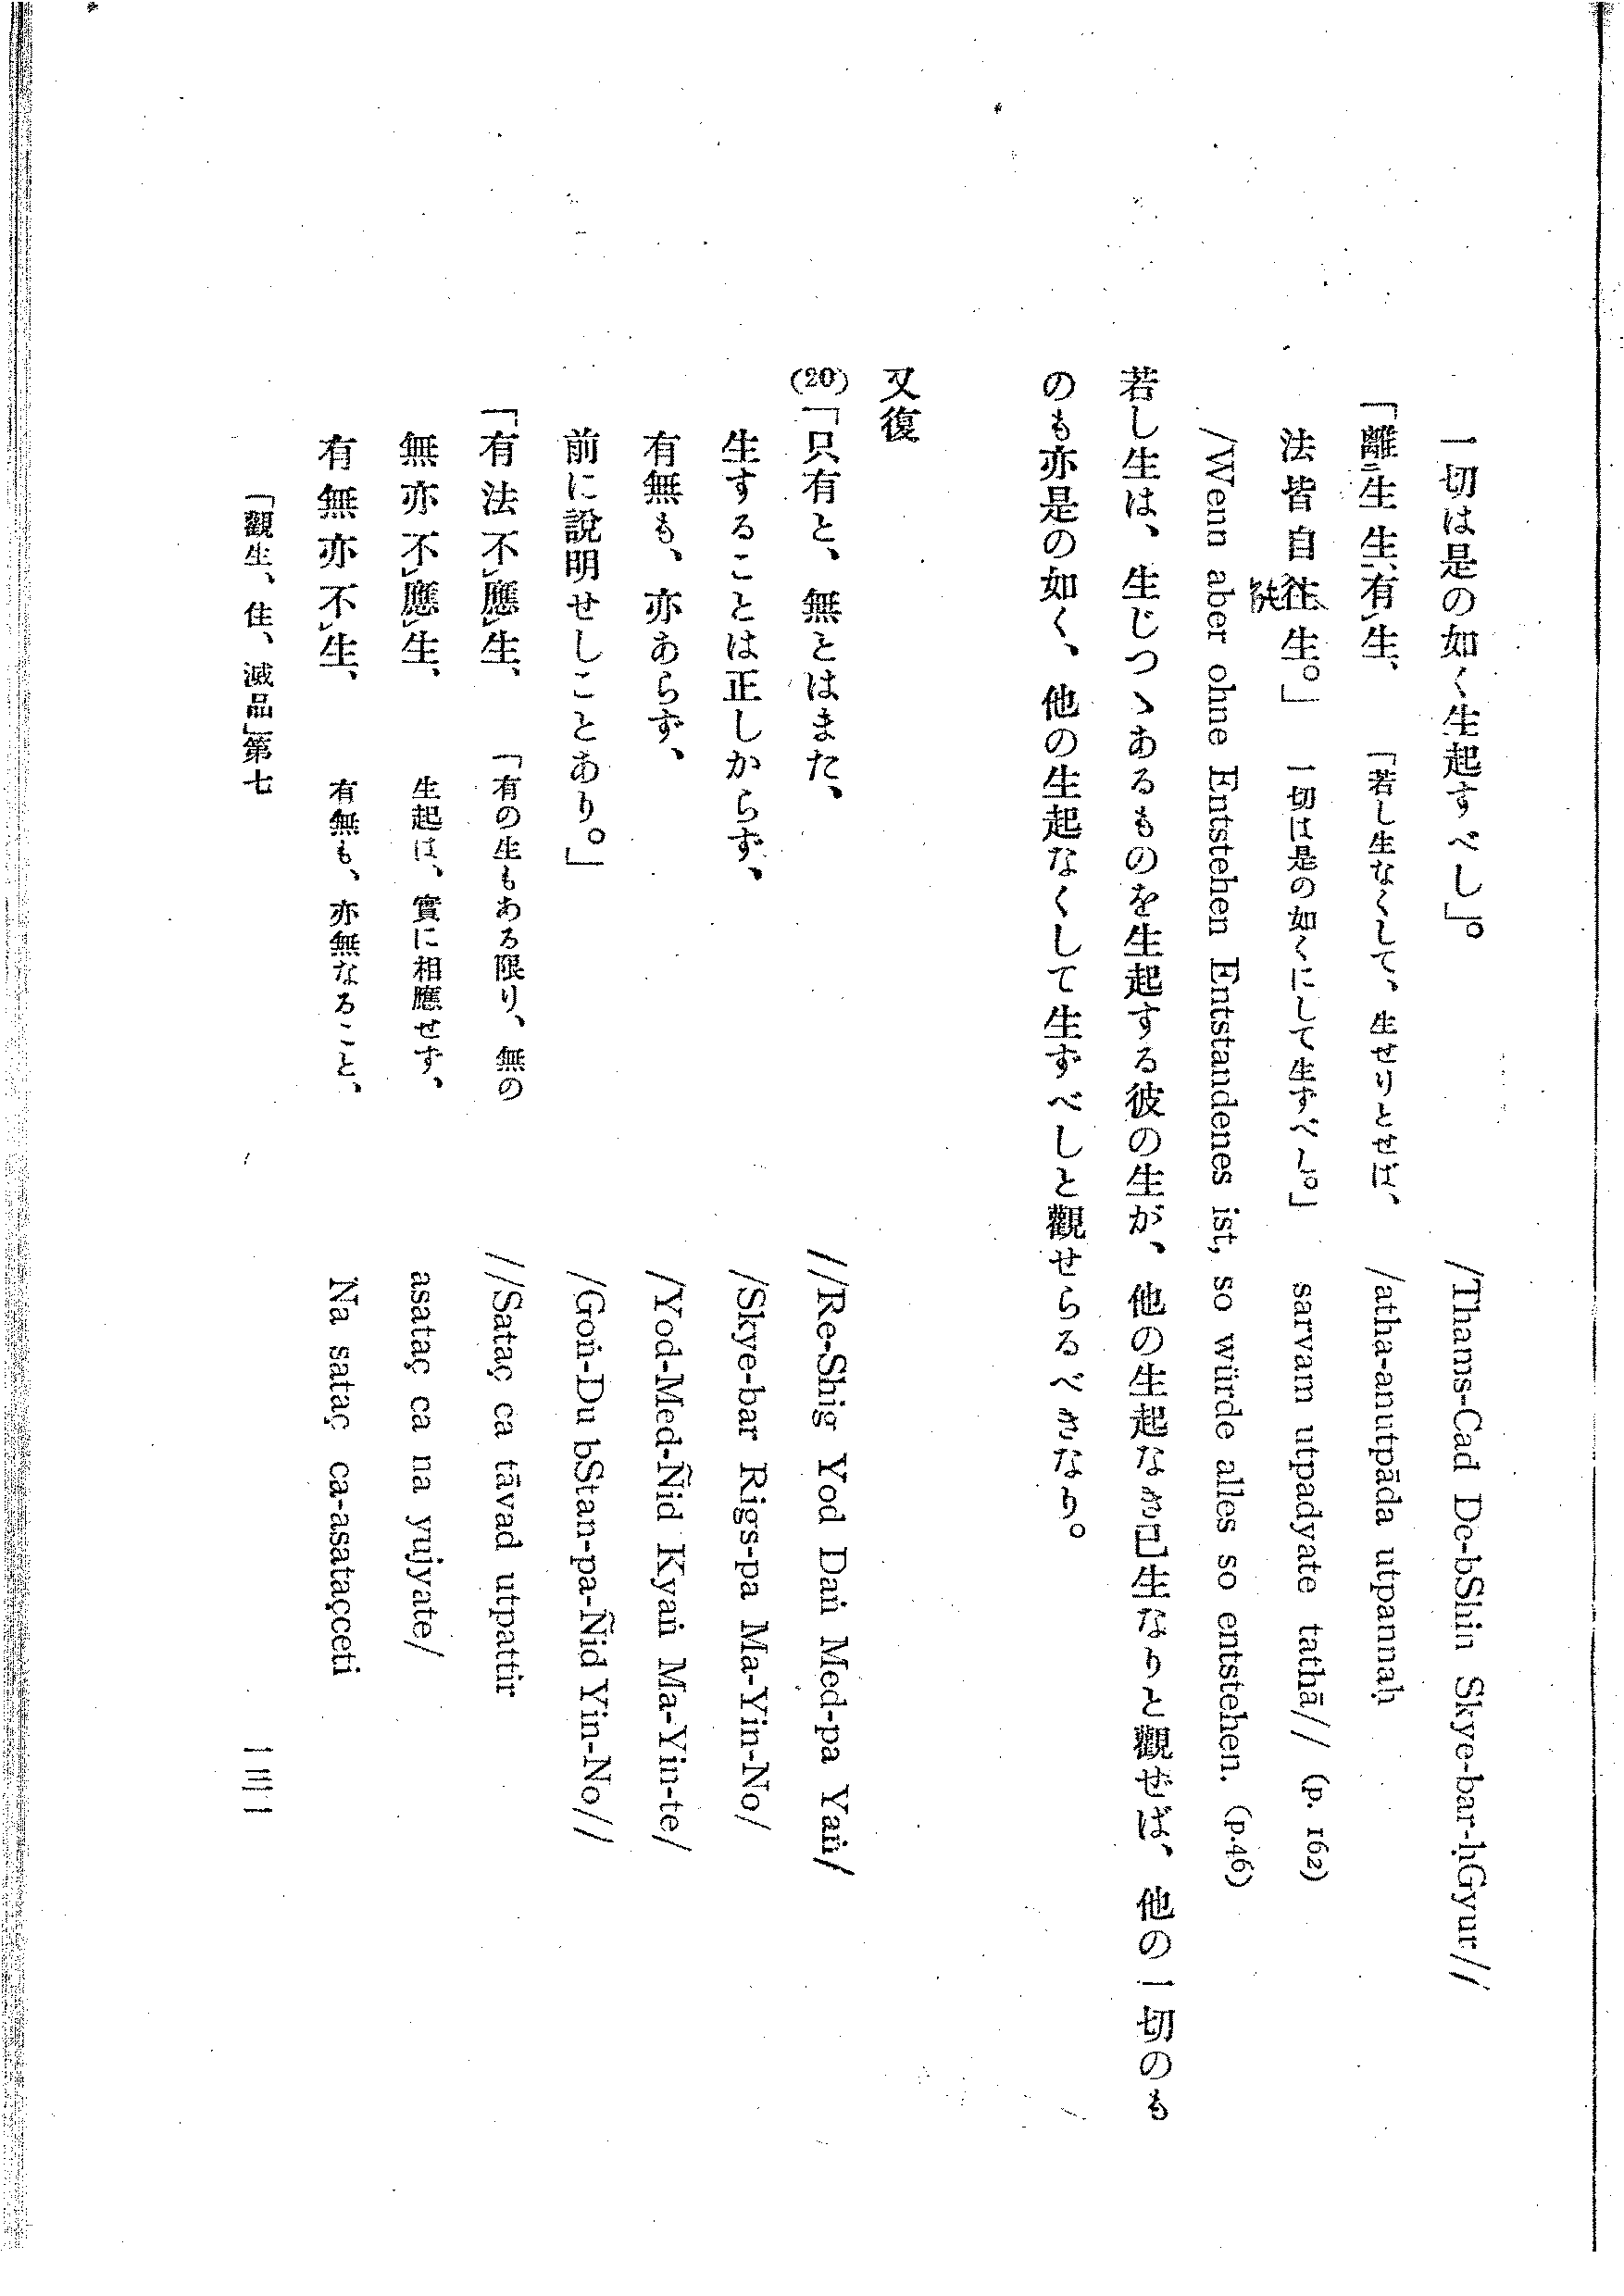 一切は是の如く生起すべし」。 /Thams-Cad De-bShin Skye-bar-ḥGyur//
「離ニ生生、有レ生、 「若し生なくして、生せりとせば、 /atha-anutpāda utpannaḥ
法皆自往生。」 一切は是の如くにして生ずべし。」 sarvam utpadyate tathā// (p. 162)
/Wenn aber ohne Entstehen Entstandenes ist, so würde alles so entstehen. (p.46)
若し生は、生じつゝあるものを生起する彼の生が、他の生起なき已生なりと觀ぜば、他の一切のも
のも亦是の如く、他の生起なくして生ずべしと觀せらるべきなり。
又復
(20)「只有と、無とはまた、 //Re-Shig Yod Daṅ Med-pa Yaṅ/
生することは正しからず、 /Skye-bar Rigs-pa Ma-Yin-No/
有無も、亦あらず、 /Yod-Med-Ñid Kyaṅ Ma-Yin-te/
前に說明せしことあり。」 /Goṅ-Du bStan-pa-Ñid Yin-No//
「有法不レ應レ生、 「有の生もある限り、無の //Sataç ca tāvad utpattir
無亦不レ應レ生、 生起は、實に相應せず、 asataç ca na yujyate/
有無亦不レ生、 有無も、亦無なること、 Na sataç ca-asataççeti
「觀生、住、滅品」第七 一三一